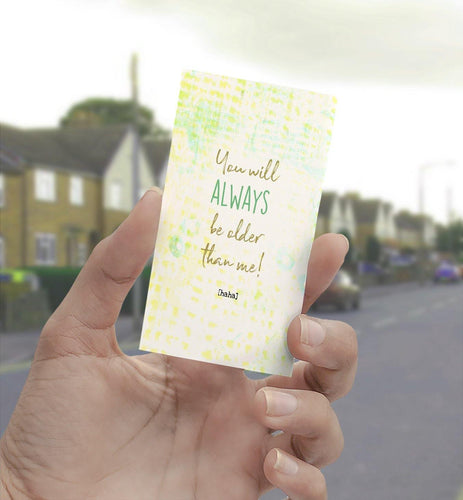 You will
ALWAYS
be older
than me!
[haha]